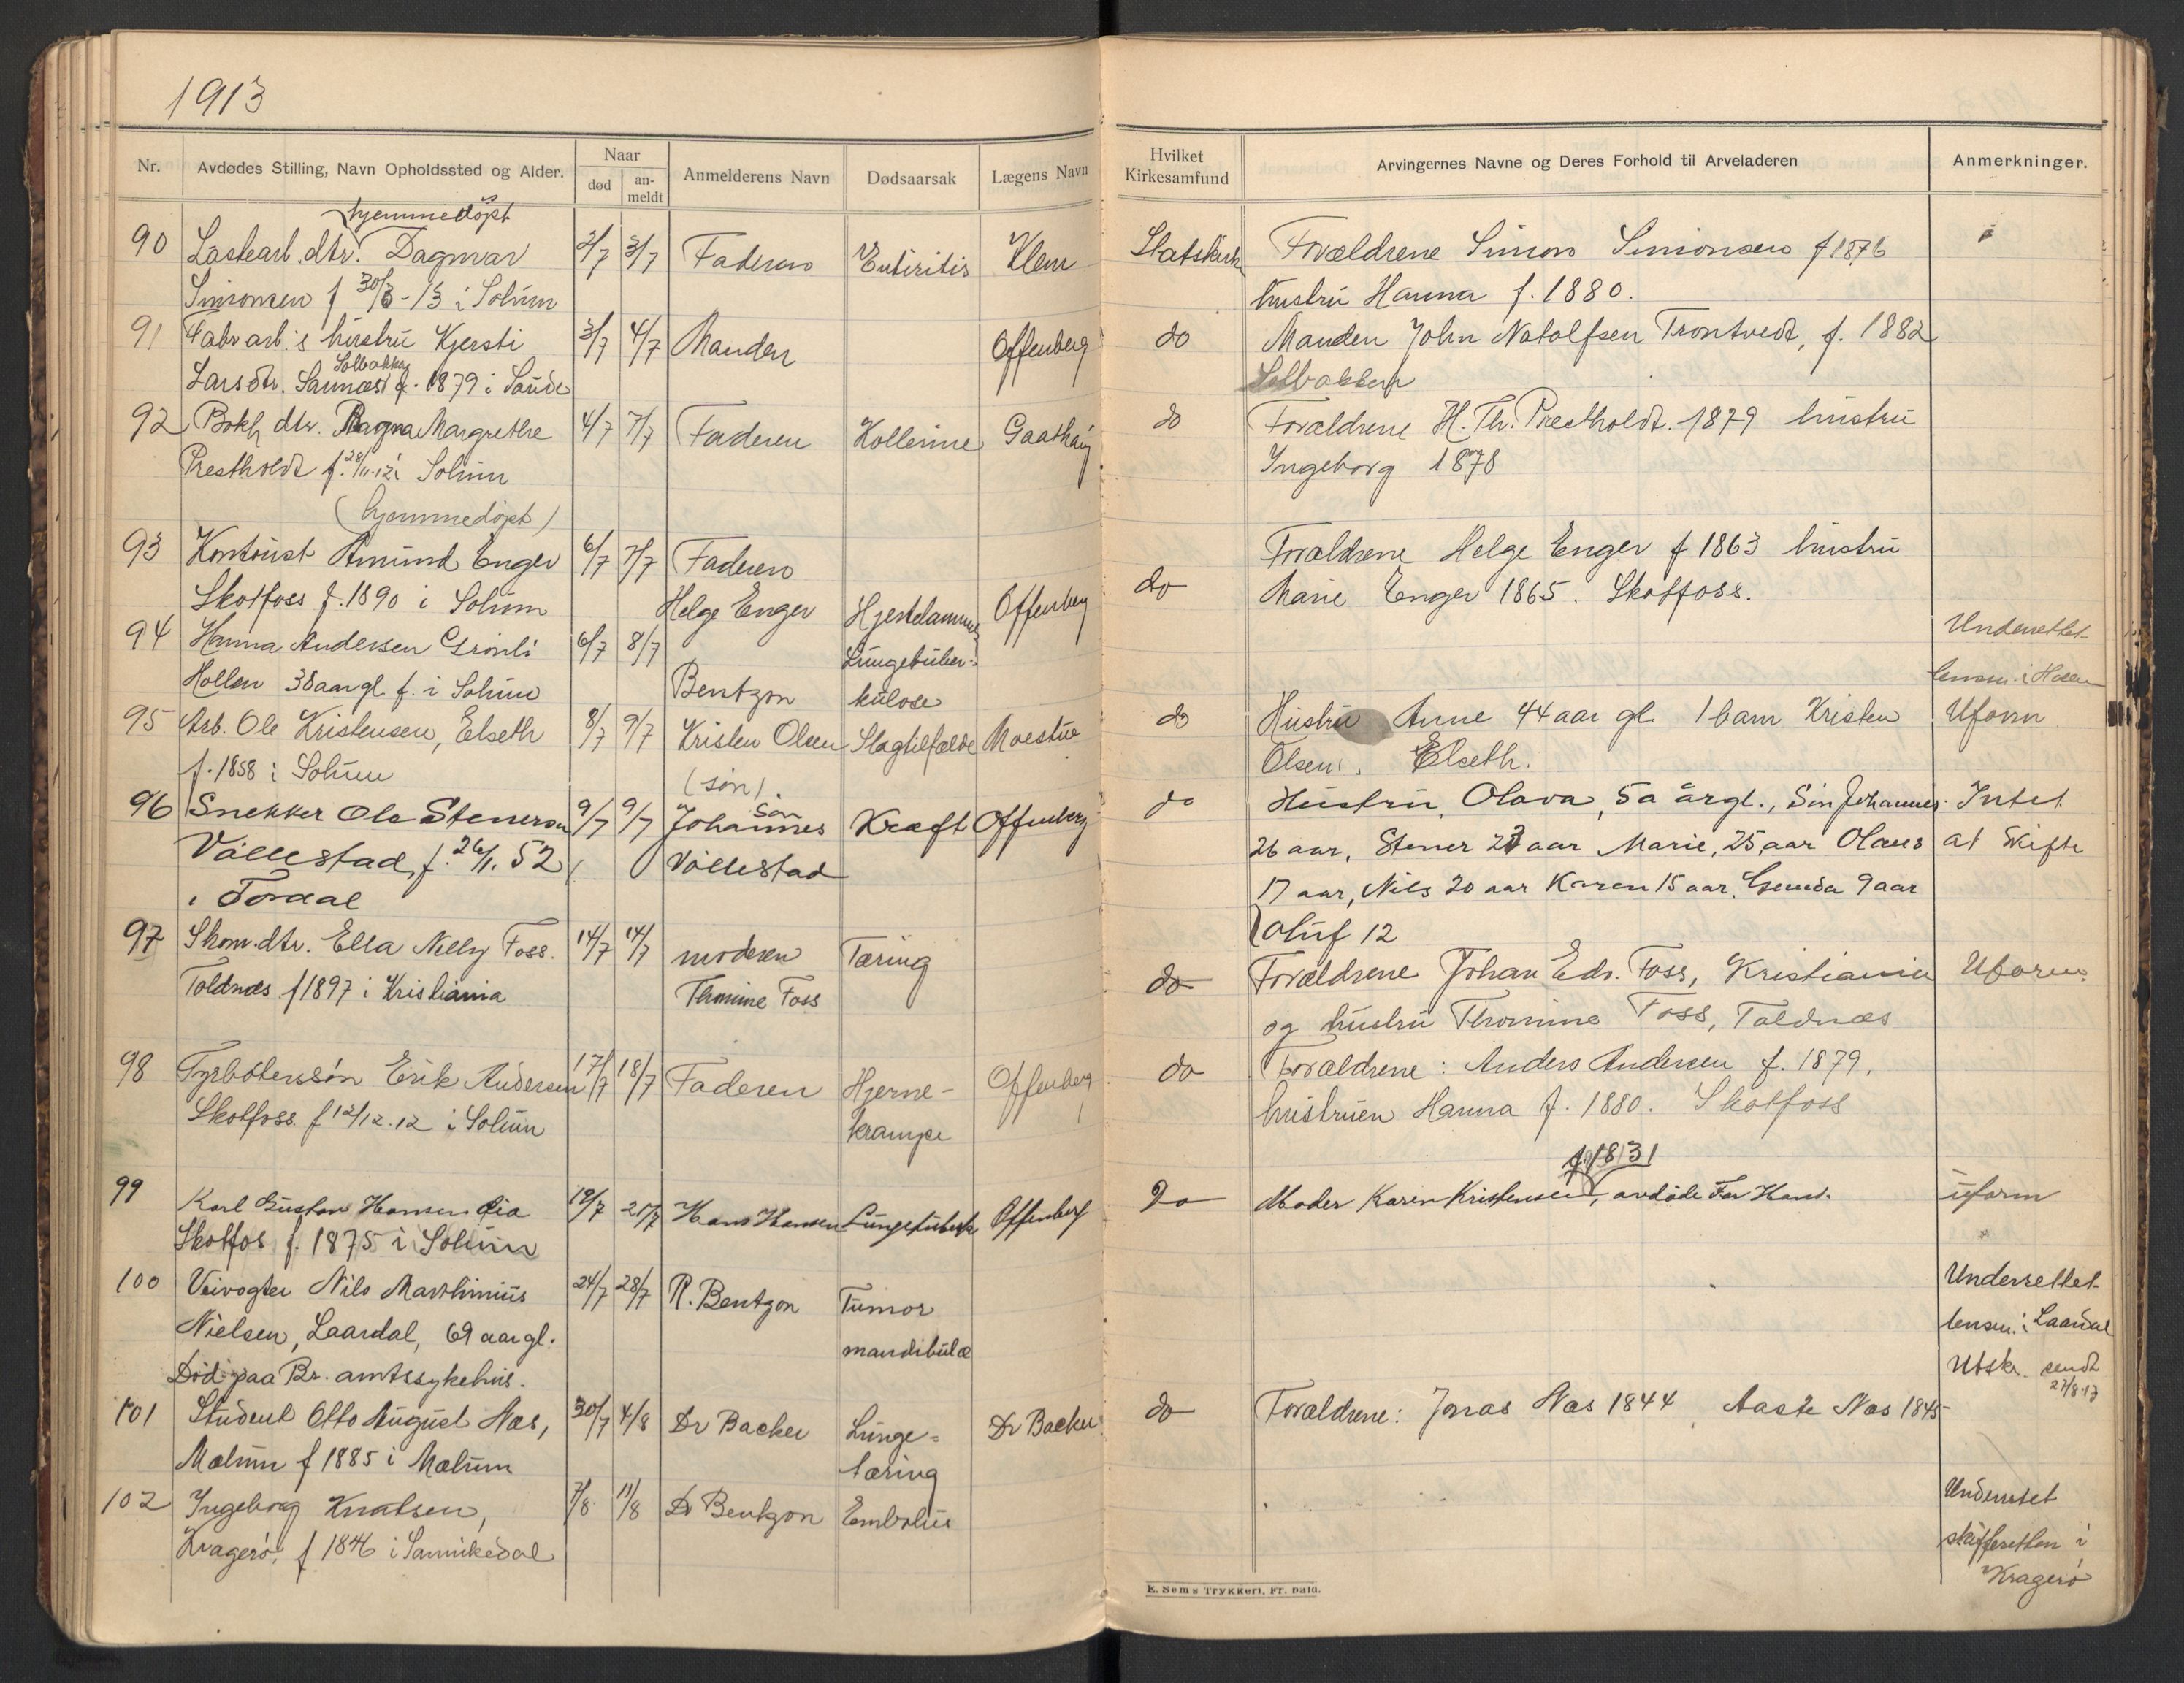 1913
Nr.
Avdødes Stilling, Navn Opholdssted og Alder.
Naar
død
an-
meldt
Anmelderens Navn
Dødsaarsak
Lægens Navn
Hvilket
Kirkesamfund
Arvingernes Navne og Deres Forhold til Arveladeren
Anmerkninger.
hjemmedøpt
90 Lastearb. dtr. Dagmar 2/7 3/7 Faderen Entiritis Klem Statskirk Forældrene Simon Simonsen f 1876
Simonsen f 30/3-13 i Solum hustru Hanna f. 1880.
91 Fabr arb.s hustru Kjersti 3/7 4/7 Manden Offenberg do Manden John Notolfsen Trontvedt, f. 1882
Solbakken
Larsdtr. f. 1879 i Saude Solbakken
92 Bokh dtr. Ragna Margrethe 4/7 7/7 Faderen Kollerine Gaathaug do Forældrene H. Th. Prestholdt. 1879 hustru
Prestholdt f. 28/11.12 i Solum Ingeborg 1878
(hjemmedøpt)
93 Kontorist Amund Enger 6/7 7/7 Faderen Forældrene Helge Enger f 1863 hustru
Skotfoss f. 1890 i Solum Helge Enger Offenberg do Marie Enger 1865. Skotfoss.
94 Hanna Andersen Grønli 6/7 8/7 Lungetuber- Underrettet
Hollen 38 aar gl. f. i Solum Bentzon kulose lensm. i Holen
95 Arb. Ole Kristensen, Elseth 8/7 9/7 Kristen Olsen Slagtilfælde Moestue do Hustru Anne 44 aar gl 1 barn Kristen Uform
f. 1858 i Solum (søn). Olsen, Elseth.
96 Snekker Ole Stenersen 9/7 9/7 Søn Johannes Kræft Offenberg do Hustru, Olava, 50 årgl., Søn Johannes Intet
Vållestad, f. 26/1. 52 Vållestad 26 aar, Stener 23 aar Marie, 25 aar Olaus at skifte
i Tørdal 17 aar, Nils 20 aar Karen 15 aar. Gunda 9 aar
Oluf 12
97 Skom. dtr. Ella Nelly Foss. 14/7 14/7 moderen Tæring do Forældrene Johan Edv. Foss, Kristiania Uform.
Toldnæs f 1897 i Kristiania Thomine Foss og hustru Thomine Foss, Toldnæs
98 Fyrbøterssøn Erik Andersen 17/7 18/7 Faderen Hjerne- Offenberg do Forældrene: Anders Andersen f. 1879,
Skotfoss f 12/12.12 i Solum krampe hustruen Hanna f. 1880. Skotfoss
f. 1831
99 Karl Gustav Hansen 19/7 21/7 Hans Hansen Lungetuberk Offenberg Do Moder Karen Kristensen, avdøde Far Hans. uform
Skotfos f. 1875 i Solum
100 Veivogter Nils Marthinius 24/7 28/7 R. Bentzon Tumor Underrettet
Nielsen, Laardal, 69 aar gl. mandibulæ lensm. i Laardal
Død paa Br. amtssykehus. Utskr. sendt
27/8.13
101 Student Otto August Næs, 30/7 4/8 Dr Backer Lunge= Dr Backer do Forældrene: Jonas Næs 1844, Aaste Næs 1845
Melum f 1885 i Melum tæring
102 Ingeborg Knutsen, 7/8 11/8 Dr Bentzon Embolus Underrettet
Kragerø, f 1846 i Sannikedal skifteretten i
Kragerø
E. Sems Trykkeri, Fr. hald.